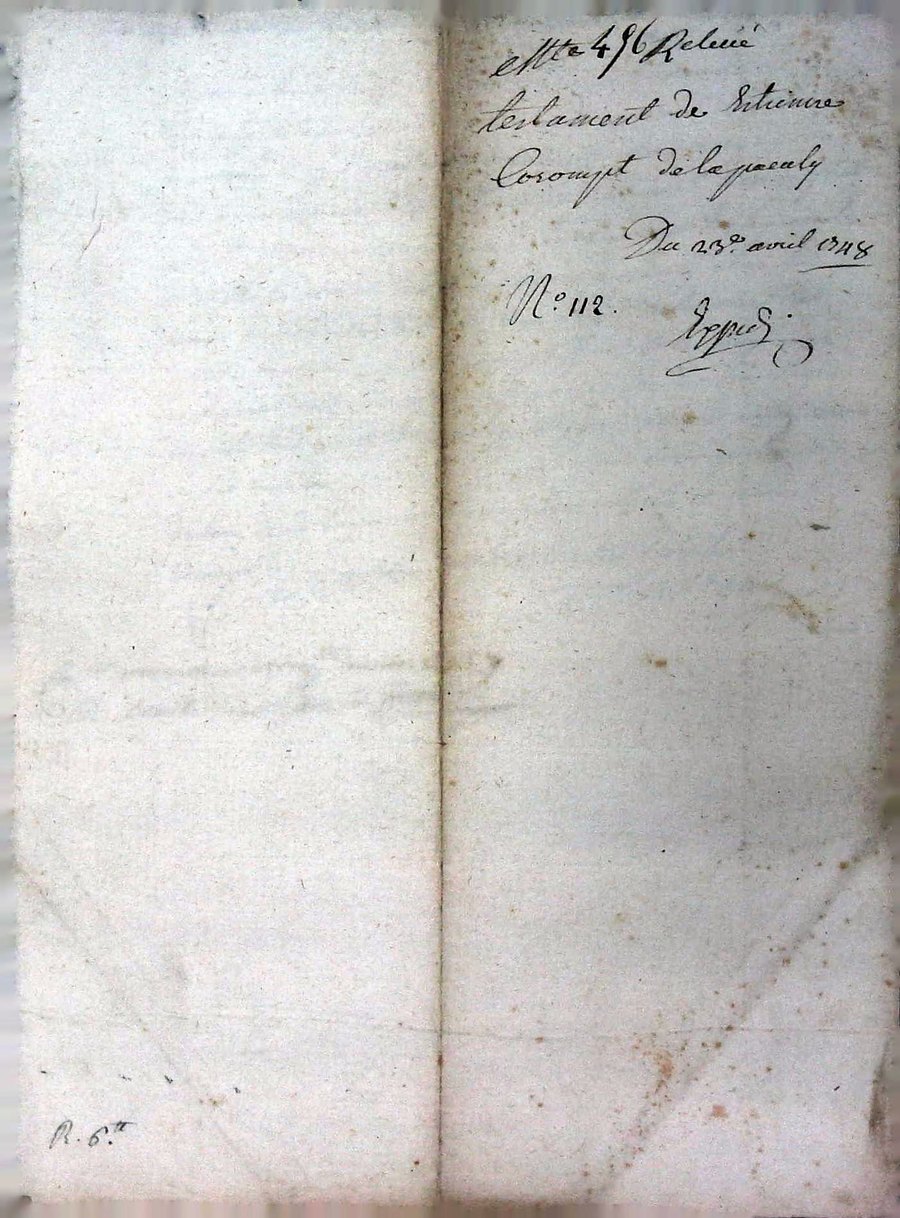 Mte 496 Relevé
testament de Estienne
Corompt de la pacaly
Du 23e. avril 1748
No. 112. Exped.
R. 6.tt